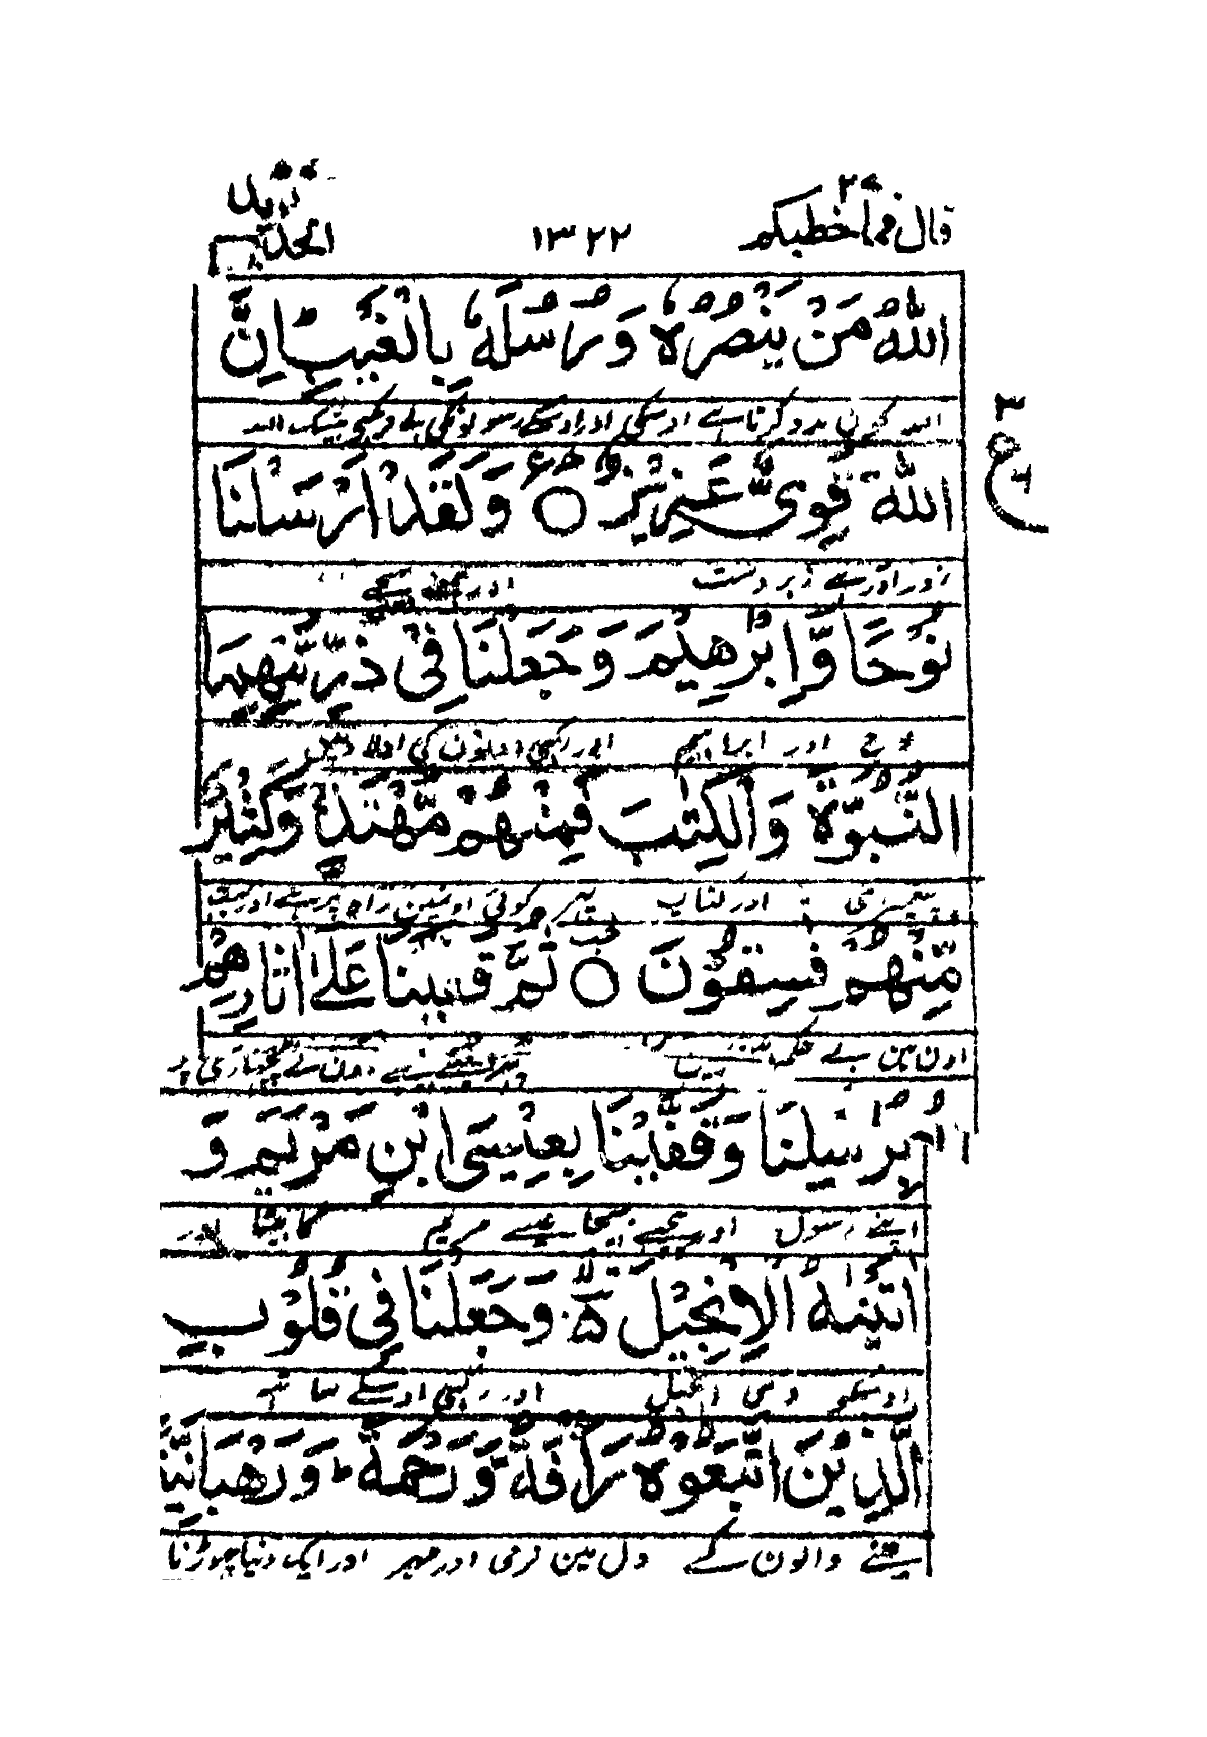 قال فما خطبکم ۲۷
۱۳۲۲
الحدید
اللّٰهُ مَنْ يَّنْصُرُهٗ وَرُسُلَهٗ بِالْغَيْبِ ؕ اِنَّ
اللہ کون مدد کرتا ہے اوسکی اور اوسکے رسولونکی بے دیکھے بیشک اللہ
اللّٰهَ قَوِيٌّ عَزِيْزٌ ○ وَلَقَدْ اَرْسَلْنَا
زور آور ہے زبردست اور
نُوْحًا وَّاِبْرٰهِيْمَ وَجَعَلْنَا فِيْ ذُرِّيَّتِهِمَا
نوح اور ابراہیم اور رکھی دونون کی اولاد مین
النُّبُوَّةَ وَالْكِتٰبَ فَمِنْهُمْ مُّهْتَدٍ ۚ وَكَثِيْرٌ
پیغمبری اور کتاب پھر کوئی اونمین راہ پر ہے اور بہت
مِّنْهُمْ فٰسِقُوْنَ ○ ثُمَّ قَفَّيْنَا عَلٰۤى اٰثَارِهِمْ
اون مین بے حکم ہین پھر
بِرُسُلِنَا وَقَفَّيْنَا بِعِيْسَى ابْنِ مَرْيَمَ وَ
اپنے رسول اور پیچھے بھیجا عیسے مریم کا بیٹا اور
اٰتَيْنٰهُ الْاِنْجِيْلَ ۙ۬ وَجَعَلْنَا فِيْ قُلُوْبِ
اوسکو دی انجیل اور رکھی اوسکے ساتھ
الَّذِيْنَ اتَّبَعُوْهُ رَاْفَةً وَّرَحْمَةً ؕ وَرَهْبَانِيَّةَ
چلنے والون کے دل مین نرمی اور مہر اور ایک دنیا چھوڑنا